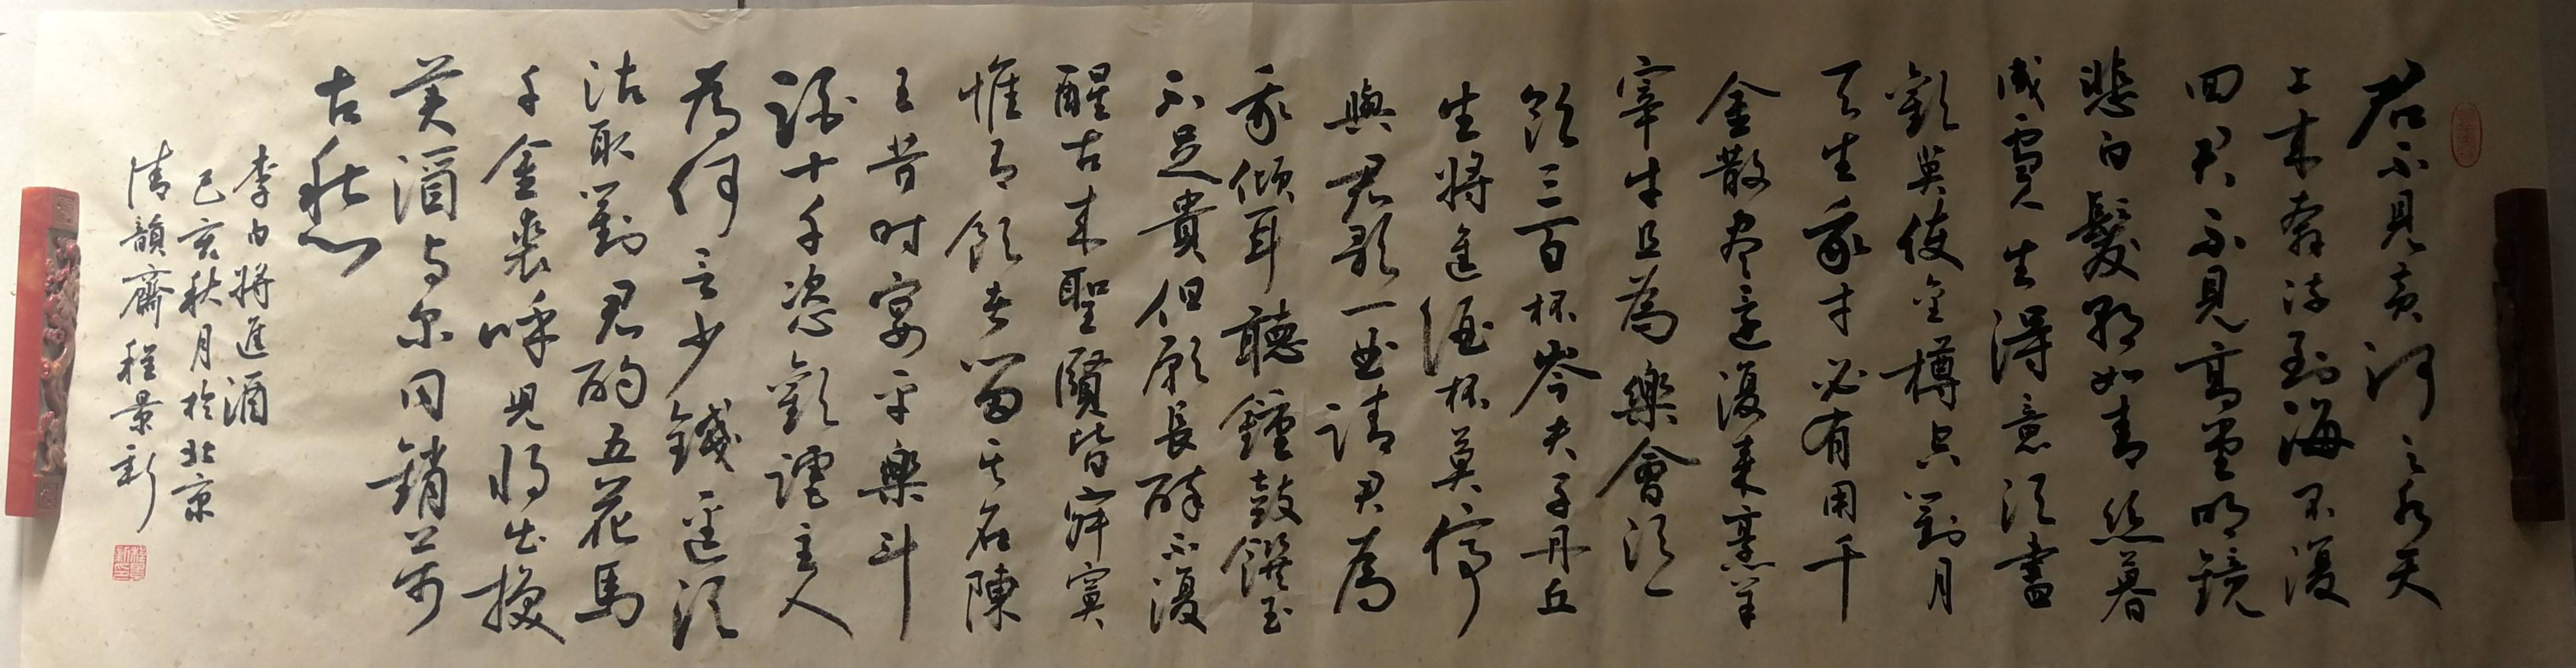 君不見黃河之水天
上來奔流到海不復
回君不見高堂明鏡
悲白髮朝如青絲暮
成雪人生得意須盡
歡莫使金樽空對月
天生我才必有用千
金散盡還復來烹羊
宰牛且為樂會須一
飲三百杯岑夫子丹丘
生將進酒杯莫停
與君歌一曲請君為
我傾耳聽鐘鼓饌玉
不足貴但願長醉不復
醒古來聖賢皆寂寞
惟有飲者留其名陳
王昔時宴平樂斗
酒十千恣歡謔主人
為何言少錢逕須
沽取對君酌五花馬
千金裘呼兒將出換
美酒與爾同銷萬
古愁
李白將進酒
己亥秋月於北京
清韻齋程景新